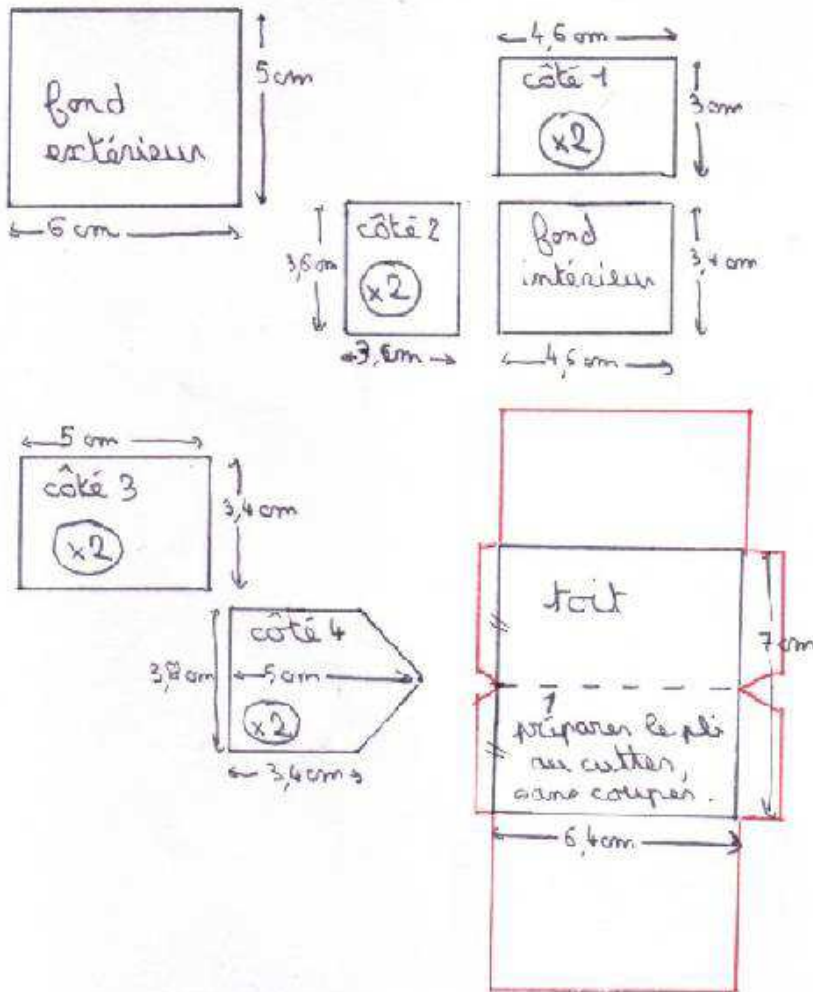 fond
extérieur
5 cm
6 cm
4,6 cm
côté 1
x2
3 cm
côté 2
x2
3,6 cm
fond
intérieur
4,6 cm
5 cm
côté 3
x2
3,4 cm
côté 4
5 cm
x2
3,4 cm
toit
7 cm
préparer le pli
au cutter,
sans couper.
6,4 cm